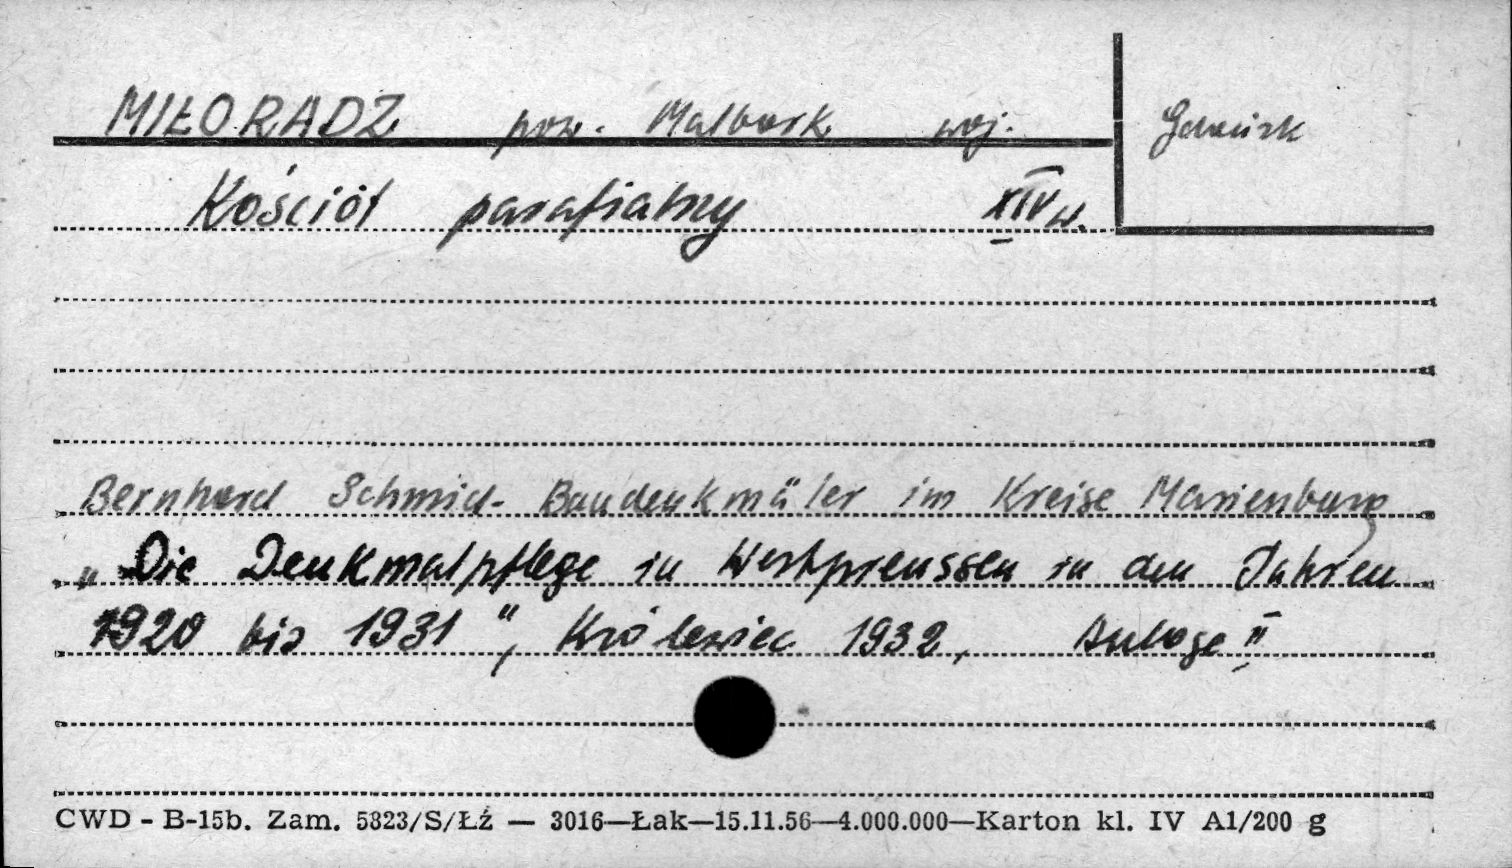 MIŁORADZ pow. Malbork woj. Gdańsk
Kościół parafialny XIV w.
Bernhard Schmid - Baudenkmäler im Kreise Marienburg
„Die Denkmalpflege in Westpreussen in den Jahren
1920 bis 1931", Królewiec 1932, Anlage II
CWD - B-15b. Zam. 5823/S/Łź — 3016—Łak—15.11.56—4.000.000—Karton kl. IV A1/200 g